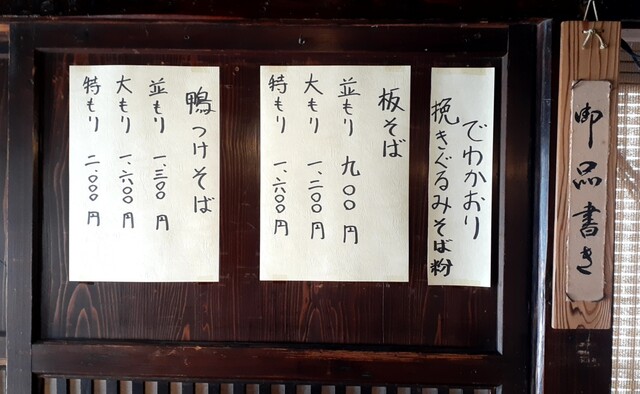 御品書き
でわかおり
挽きぐるみそば粉
板そば
並もり 九〇〇円
大もり 一、二〇〇円
特もり 一、六〇〇円
鴨つけそば
並もり 一、三〇〇円
大もり 一、六〇〇円
特もり 二、〇〇〇円